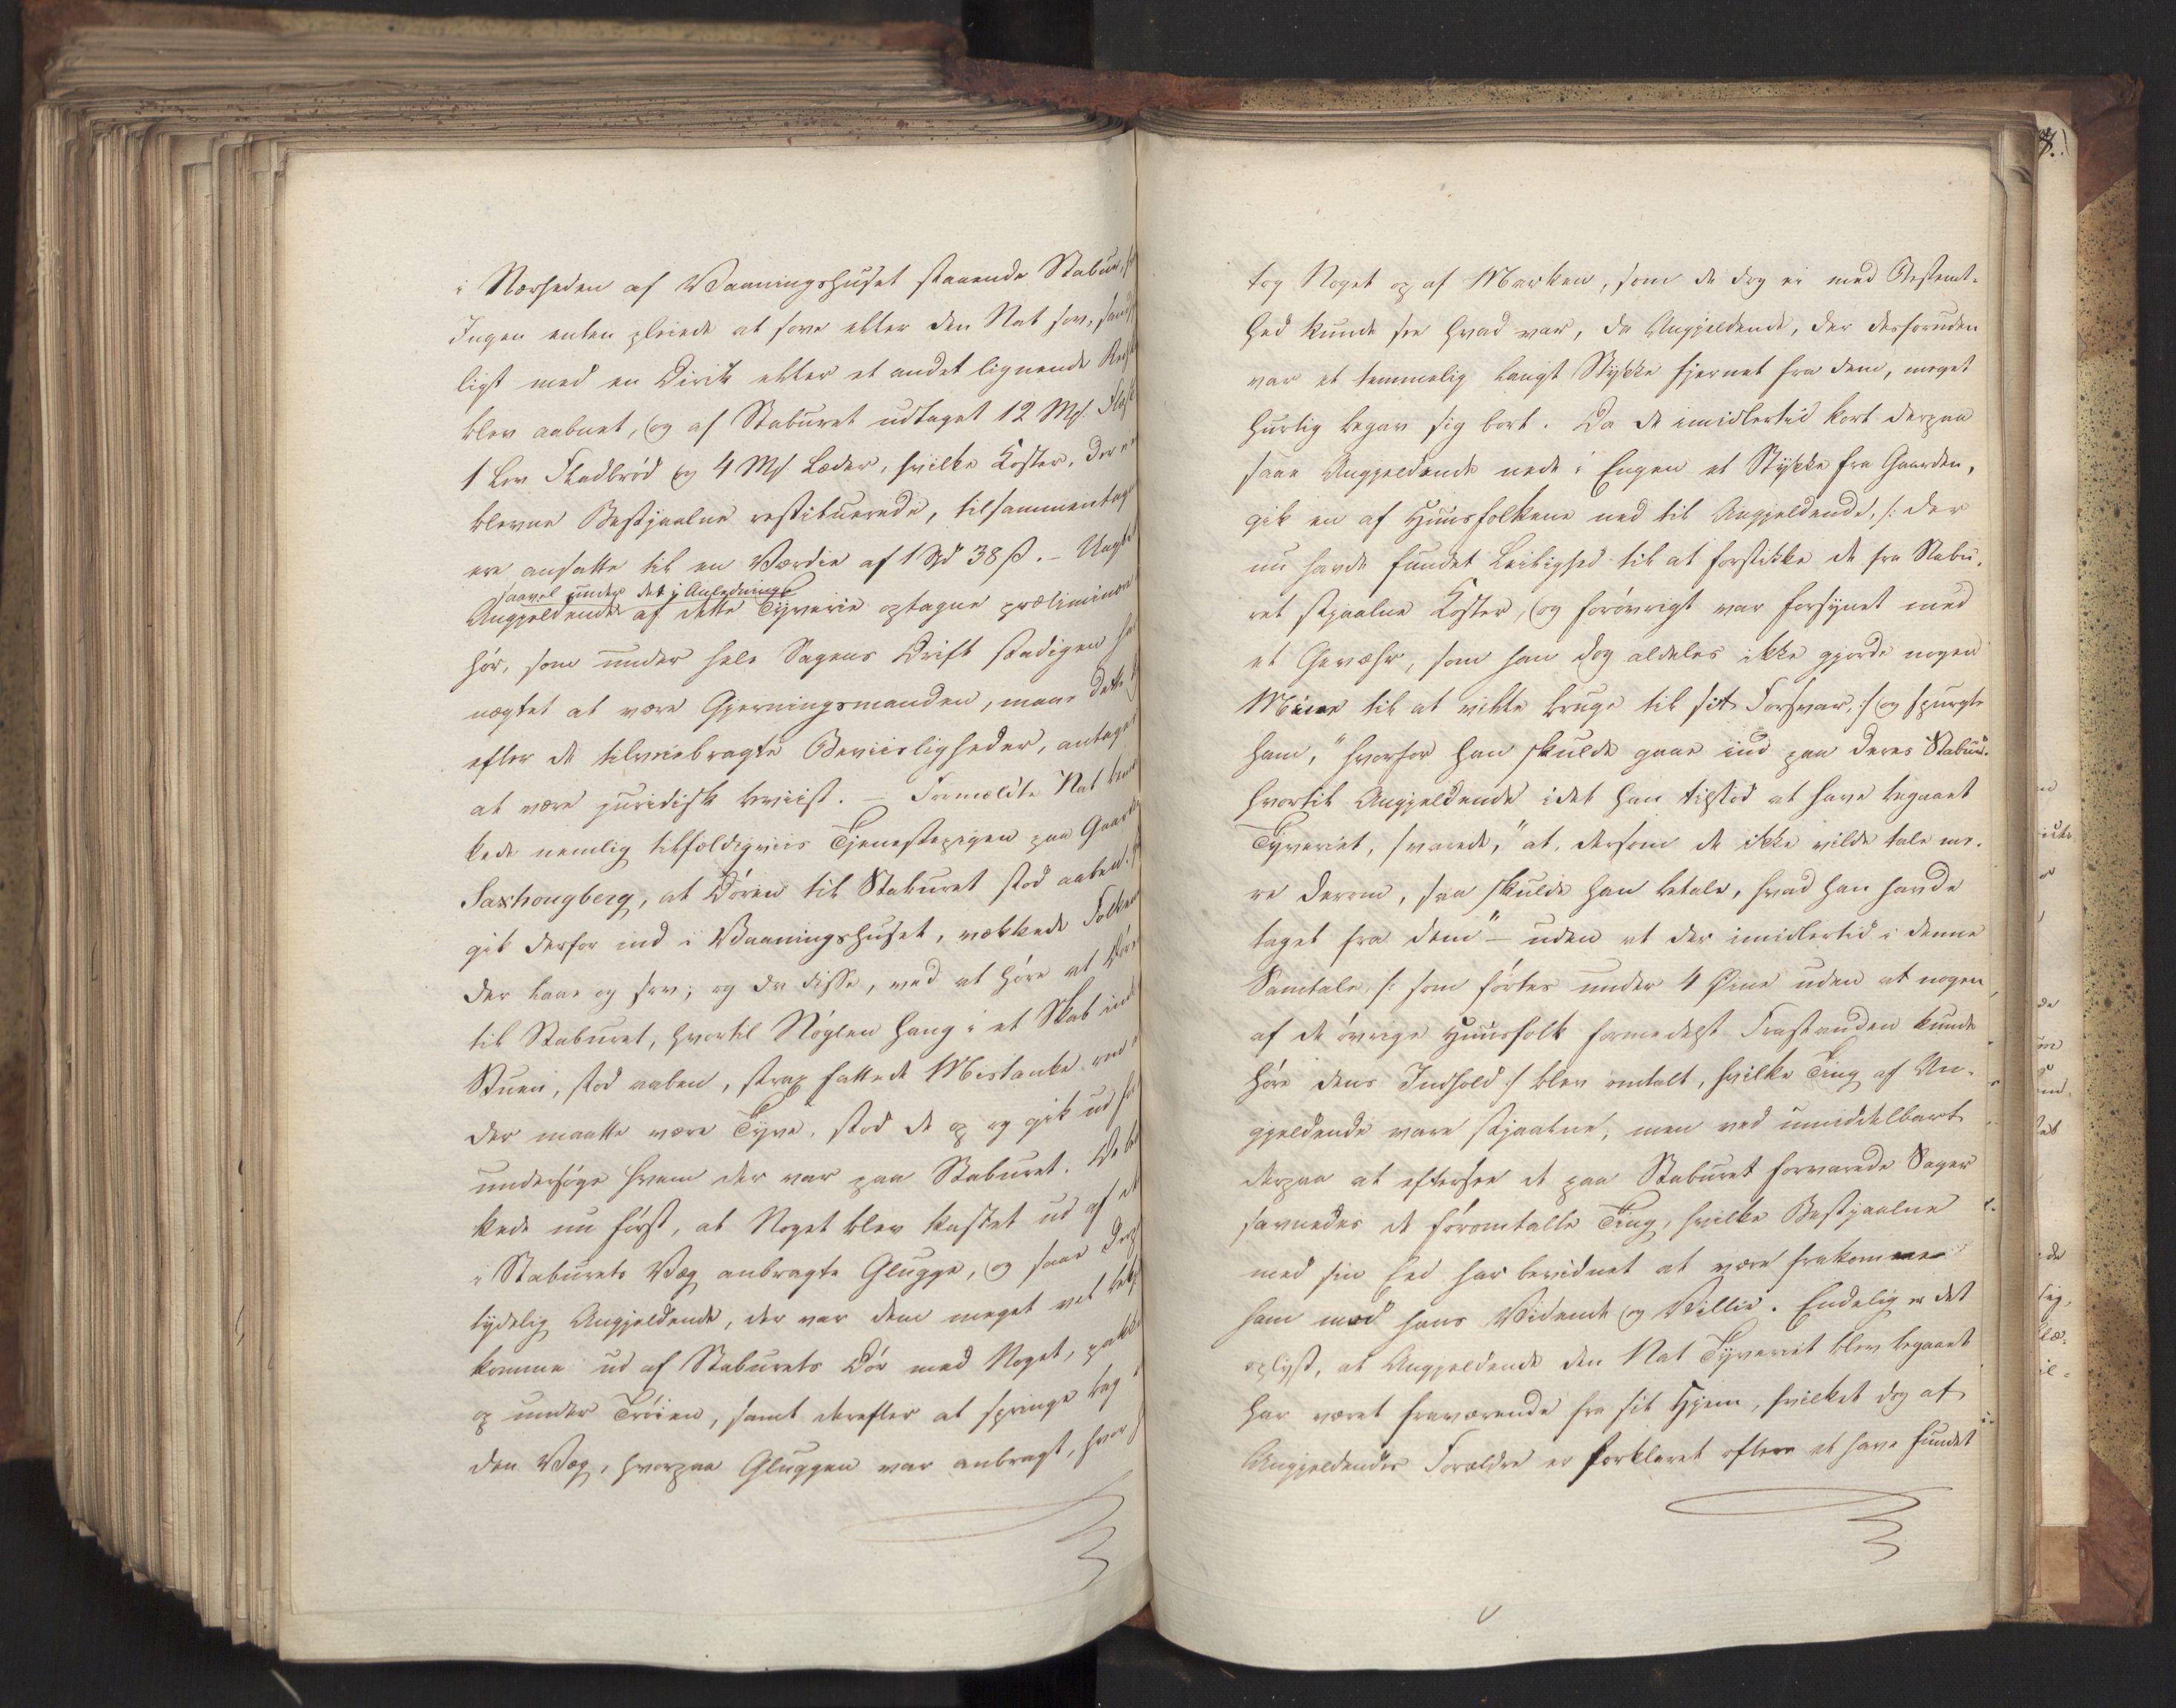 i Nærheden af Vaaningshuset staaende Stabur,
Ingen enten pleiede at sove eller den Nat sov, sand
ligt med en Dirik eller et andet lignende Red
blev aabnet, og af Staburet udtaget 12 Mk. Flæsk
1 Lev Fladbrød og 4 Mk. Læder, hvilke Koster, der
blevne Bestjaalne restituerede, tilsammentag
ere ansatte til en Værdie af 1 Spd 38 ß. – Uagt
saavel under det i Anledning
Angjældende af dette Tyverie optagne præliminær
hør, som under hele Sagens Drift stadigen ha
nægtet at være Gjerningsmanden, maa dette
efter de tilveiebragte Beviisligheder, antage
at være juridisk beviist. – Formeldte Nat be
kede nemlig tilfældigviis Tjenestepigen paa Gaard
Saxhougberg, at Døren til Staburet stod aaben.
gik derfor ind i Vaaningshuset, vækkede Folkene
der laae og sov; og da disse, ved at høre at Dør
til Staburet, hvortil Nøglen hang i et Skab ind
Stuen, stod aaben, strax fattede Mistanke om
der maatte være Tyve, stod de op og gik ud fo
undersøge hvem der var paa Staburet. De be
kede nu først, at Noget blev kastet ud af et
i Staburets Væg anbragte Glugge, og saae derp
tydelig Angjeldende, der var dem meget vel bekj
komme ud af Staburets Dør med Noget, pakke
op under Trøien, samt derefter at springe bag
den Væg, hvorpaa Gluggen var anbragt, hvor h
tog Noget op af Marken, som de dog ei med Bestemt-
hed kunde see hvad var, da Angjeldende, der desforuden
var et temmelig langt Stykke fjernet fra dem, meget
hurtig begav sig bort. Da de imidlertid kort derpaa
saae Angjeldende nede i Engen et Stykke fra Gaarden,
gik en af Huusfolkene ned til Angjeldende, /: der
nu havde fundet Leilighed til at forstikke de fra Stabu-
ret stjaalne Koster, og forøvrigt var forsynet med
et Gevæhr, som han dog aldeles ikke gjorde nogen
Miine til at ville bruge til sit Forsvar, :/ og spurgte
ham, "hvorfor han skulde gaae ind paa deres Stabuur"
hvortil Angjeldende idet han tilstod at have begaaet
Tyveriet, svarede, "at, dersom de ikke vilde tale me-
re derom, saa skulde han betale, hvad han havde
taget fra dem" – uden at der imidlertid i denne
Samtale, /: som førtes under 4 Øine uden at nogen
af de øvrige Huusfolk formedelst Frastanden kunde
høre dens Indhold :/ blev omtalt, hvilke Ting af An-
gjeldende vare stjaalne; men ved umiddelbart
derpaa at eftersee de paa Staburet forvarede Sager
savnedes de føromtalte Ting, hvilke Bestjaalne
med sin Eed har bevidnet at være frakomme
ham mod hans Vidende og Villie. Endelig er det
oplyst, at Angjeldende den Nat Tyveriet blev begaaet
har været fraværende fra sit Hjem, hvilket dog af
Angjeldendes Forældre er forklaret oftere at have fundet